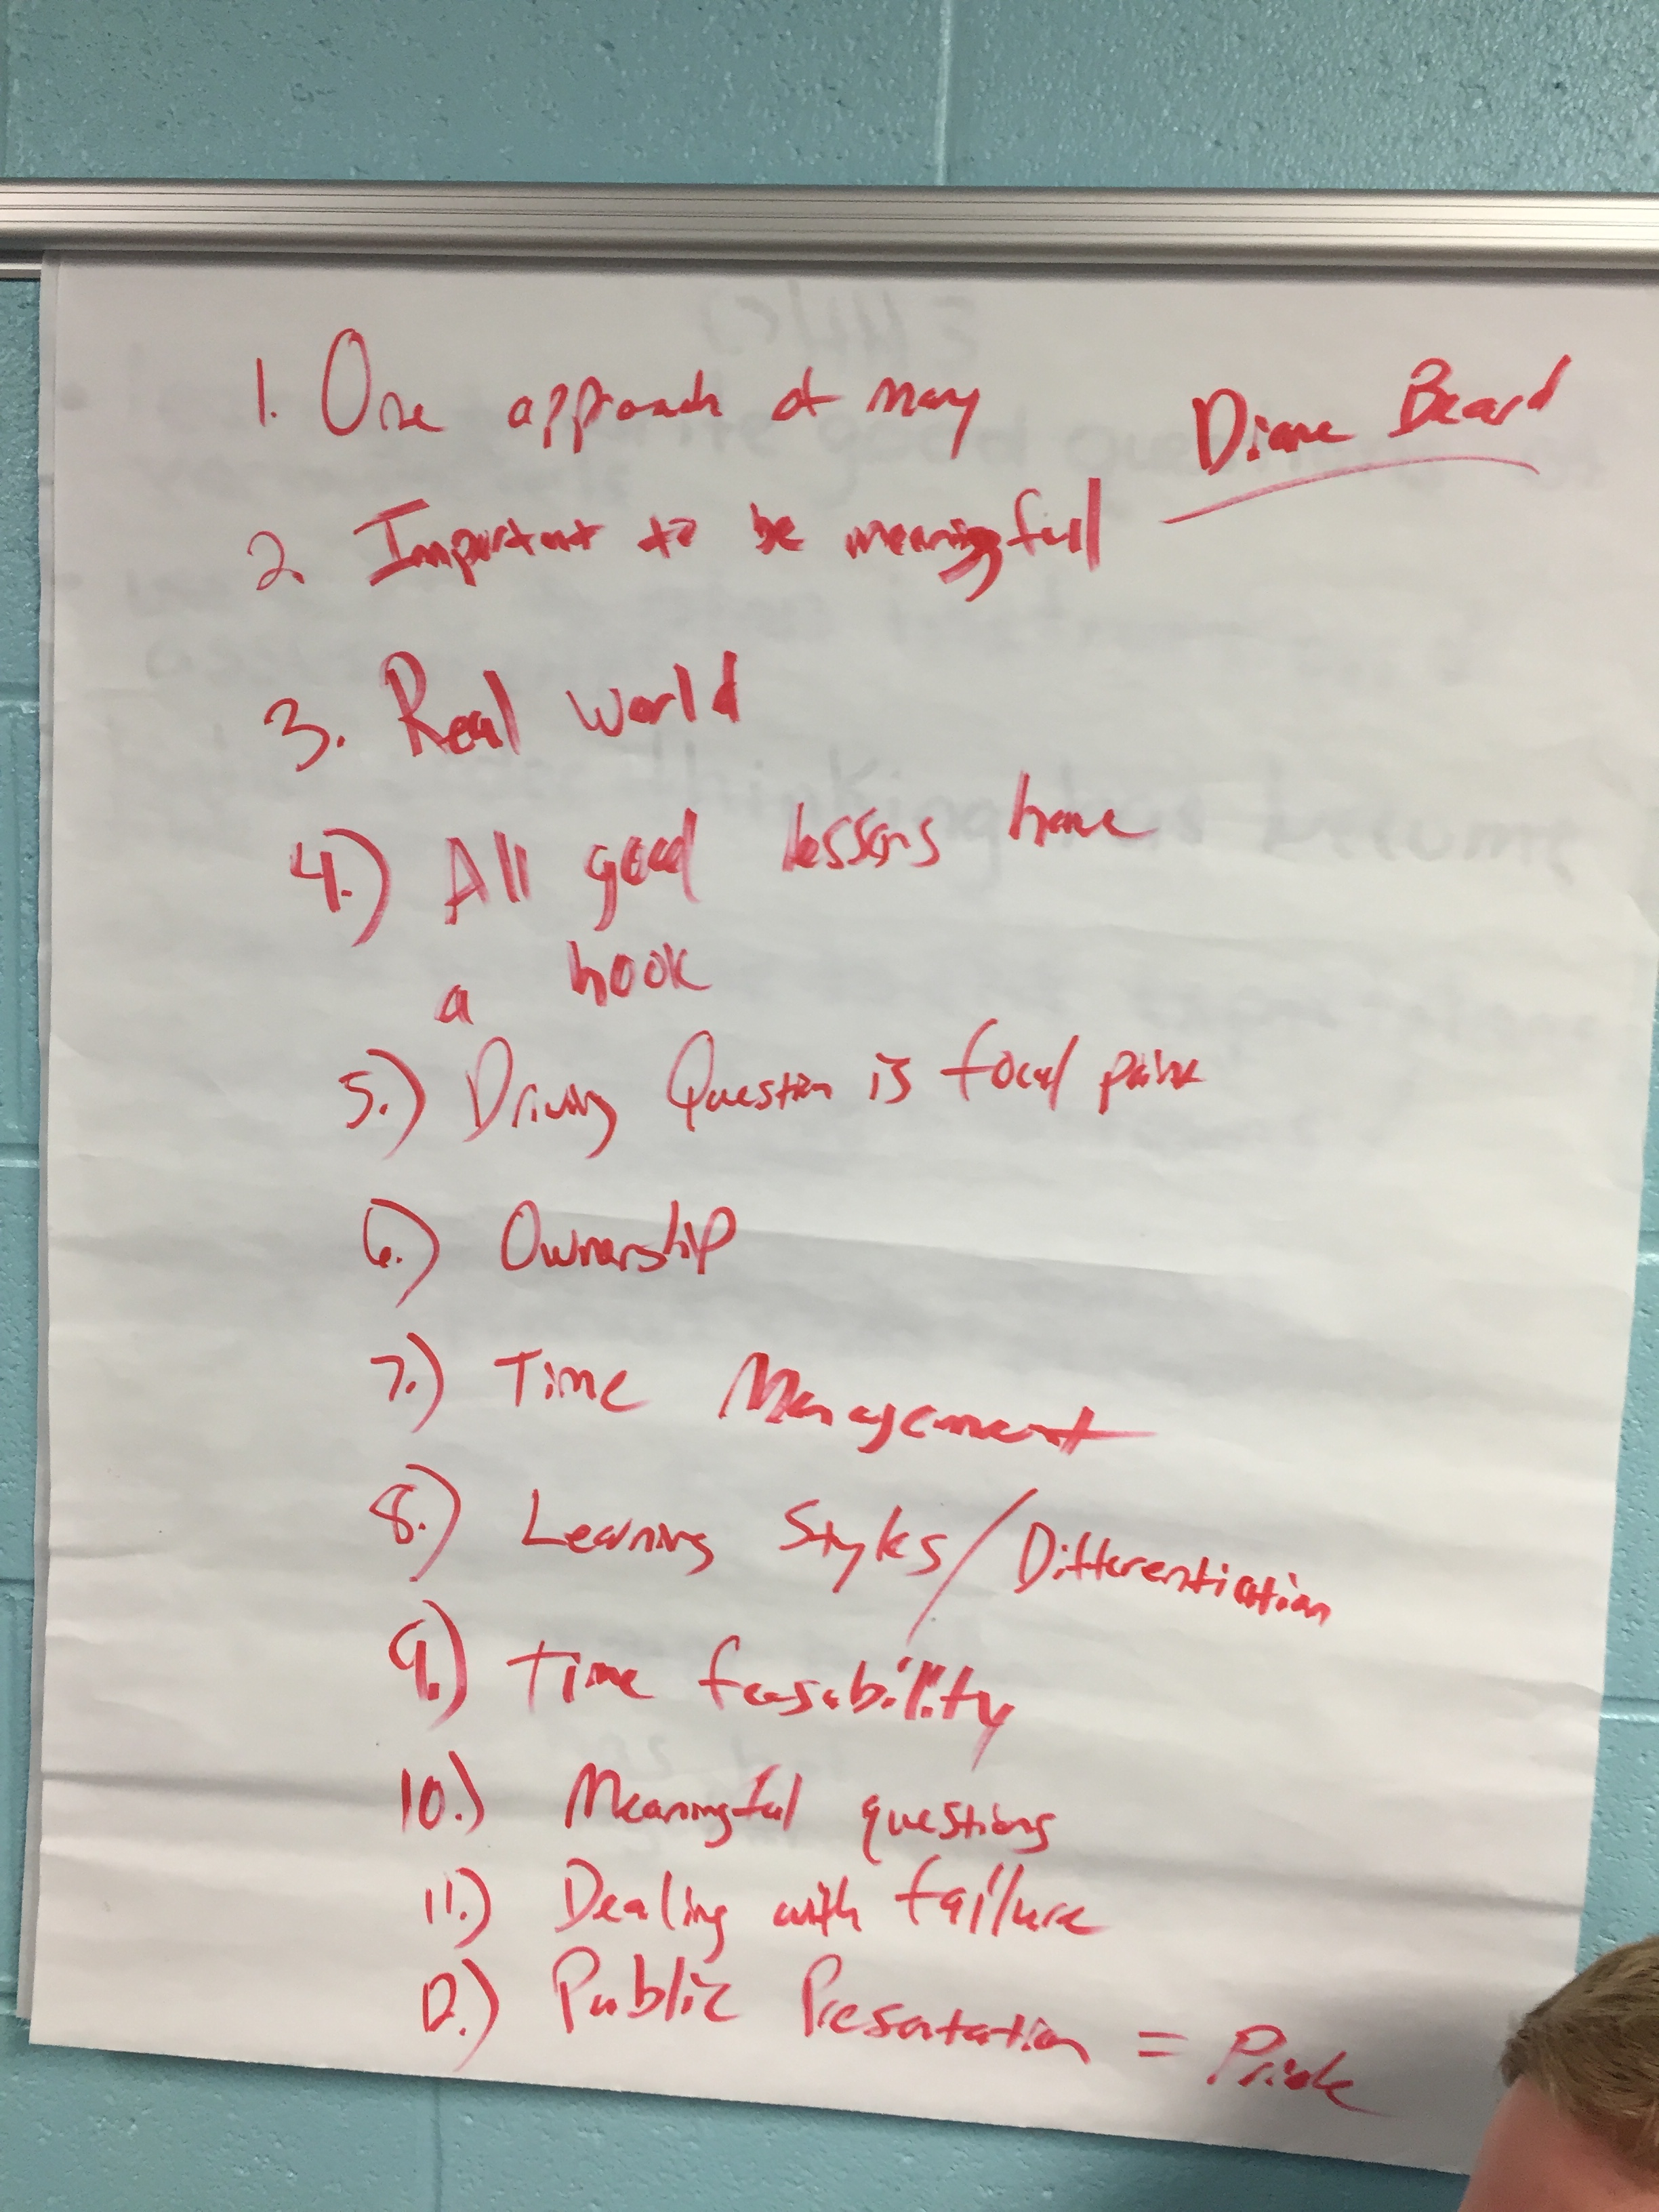 1. One approach of many
Diane Beard
2. Important to be meaningfull
3. Real world
4.) All good lessons have
a hook
5.) Driving Question is focal point
6.) Ownership
7.) Time Management
8.) Learning Styles / Differentiation
9.) Time feasability
10.) Meaningful questions
11.) Dealing with failure
12.) Public Presentation = Pride